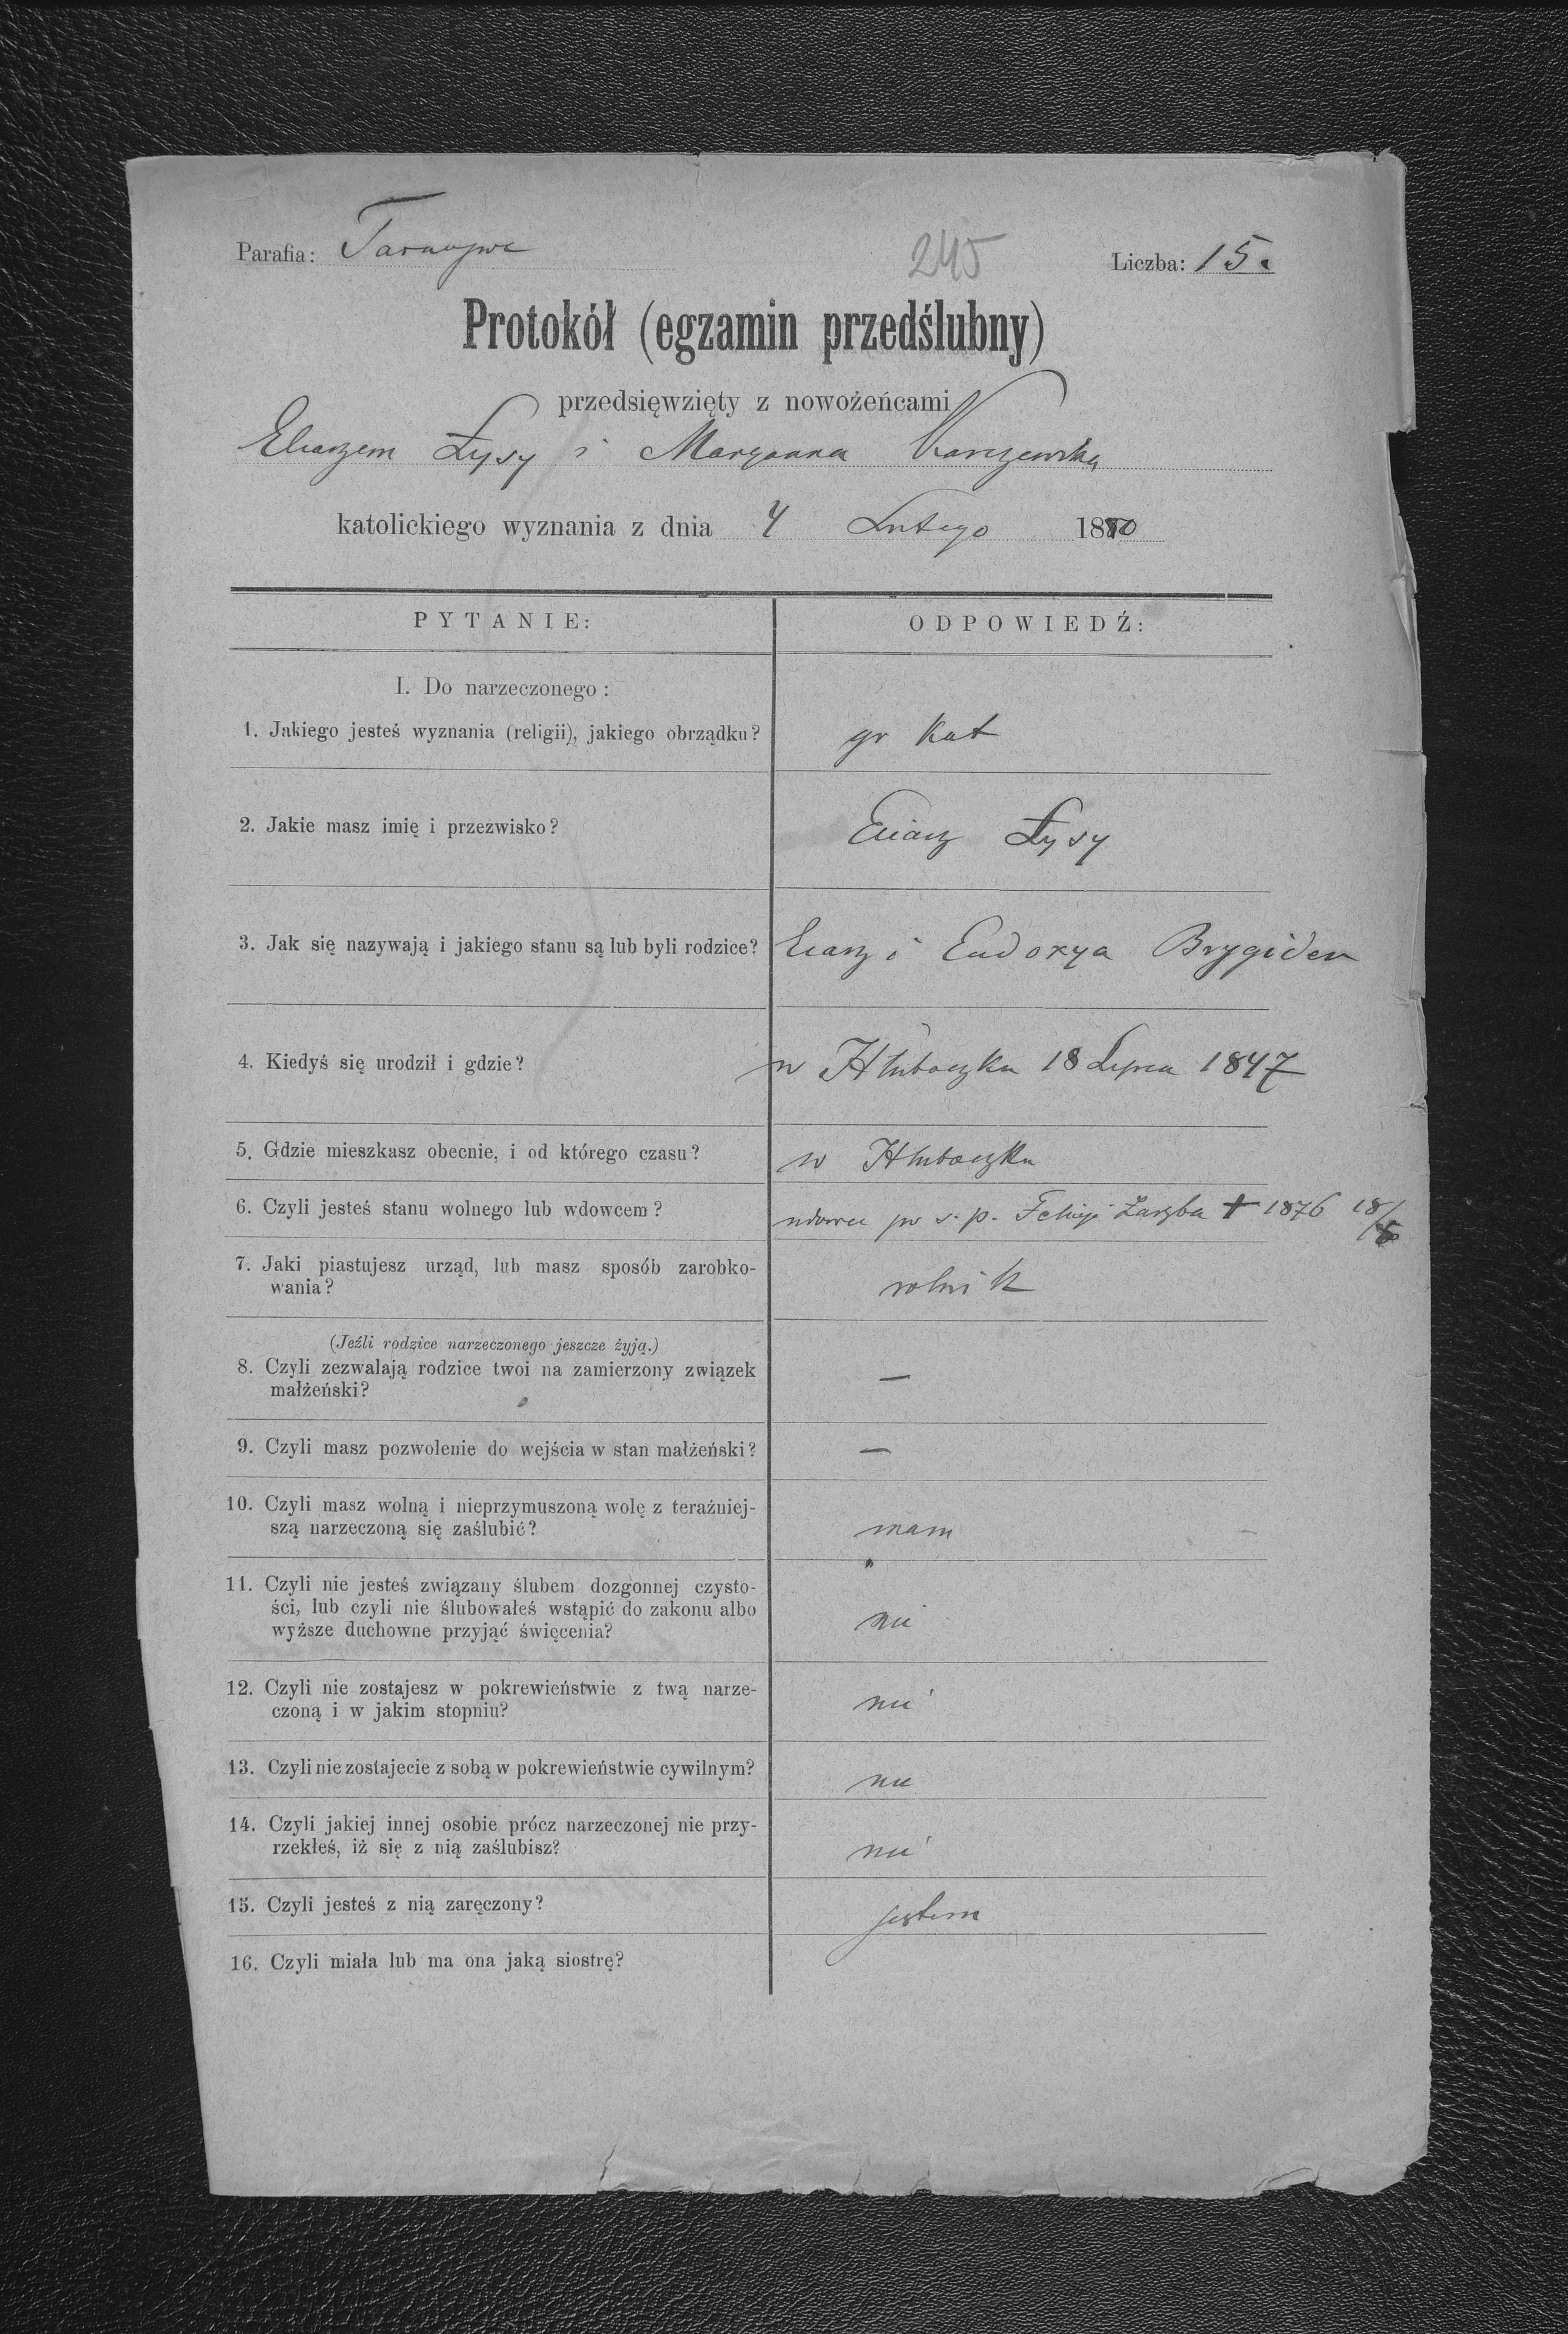 Parafia: 245 Liczba: 15.
Protokół (egzamin przedślubny)
przedsięwzięty z nowożeńcami
Eliaszem Łysy i Maryanna
katolickiego wyznania z dnia 4 Lutego 1880
PYTANIE: ODPOWIEDŹ:
I. Do narzeczonego:
1. Jakiego jesteś wyznania (religii), jakiego obrządku? gr kat
2. Jakie masz imię i przezwisko? Eliasz Łysy
3. Jak się nazywają i jakiego stanu są lub byli rodzice? Eliasz i Eudoxya Brygider
4. Kiedyś się urodził i gdzie? w Hłuboczku 18 Lipca 1847
5. Gdzie mieszkasz obecnie, i od którego czasu? w Hłuboczku
6. Czyli jesteś stanu wolnego lub wdowcem? po ś. p. + 1876 18/
7. Jaki piastujesz urząd, lub masz sposób zarobko-
wania? rolnik
(Jeźli rodzice narzeczonego jeszcze żyją.)
8. Czyli zezwalają rodzice twoi na zamierzony związek
małżeński? —
9. Czyli masz pozwolenie do wejścia w stan małżeński? —
10. Czyli masz wolną i nieprzymuszoną wolę z teraźniej-
szą narzeczoną się zaślubić? mam
11. Czyli nie jesteś związany ślubem dozgonnej czysto-
ści, lub czyli nie ślubowałeś wstąpić do zakonu albo
wyższe duchowne przyjąć święcenia? nie
12. Czyli nie zostajesz w pokrewieństwie z twą narze-
czoną i w jakim stopniu? nie
13. Czyli nie zostajecie z sobą w pokrewieństwie cywilnym? nie
14. Czyli jakiej innej osobie prócz narzeczonej nie przy-
rzekłeś, iż się z nią zaślubisz? nie
15. Czyli jesteś z nią zaręczony? jestem
16. Czyli miała lub ma ona jaką siostrę?